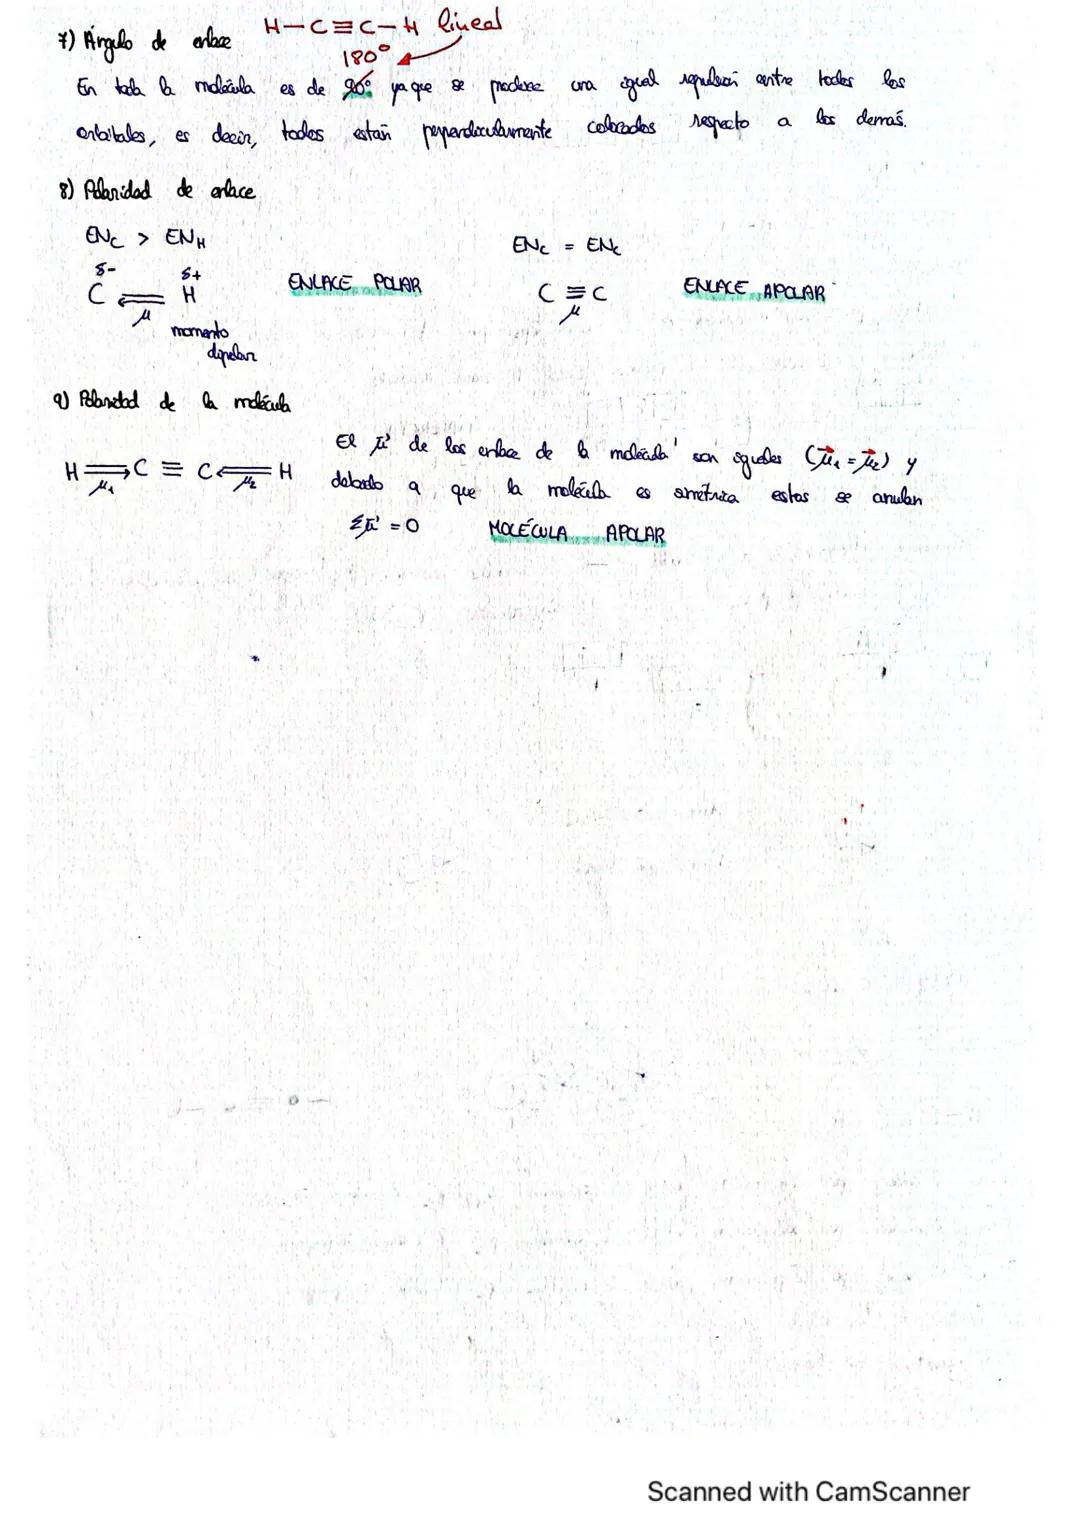 H-C≡C-H lineal
7) Ángulo de enlace
180°
En toda la molécula es de 90° ya que se produce una igual repulsión entre todos los
orbitales, es decir, todos están perpendicularmente colocados respecto a los demás.
8) Polaridad de enlace
ENC > ENH
ENC = ENC
δ- δ+
C H ENLACE POLAR
C ≡ C ENLACE APOLAR
μ
μ
momento
dipolar
9) Polaridad de la molécula
El μ de los enlace de la molécula son iguales (μ1 = μ2) y
H⇒C ≡ C⇐H
μ1 μ2
debido a que la molécula es simétrica estos se anulan
Σμ = 0 MOLÉCULA APOLAR
Scanned with CamScanner